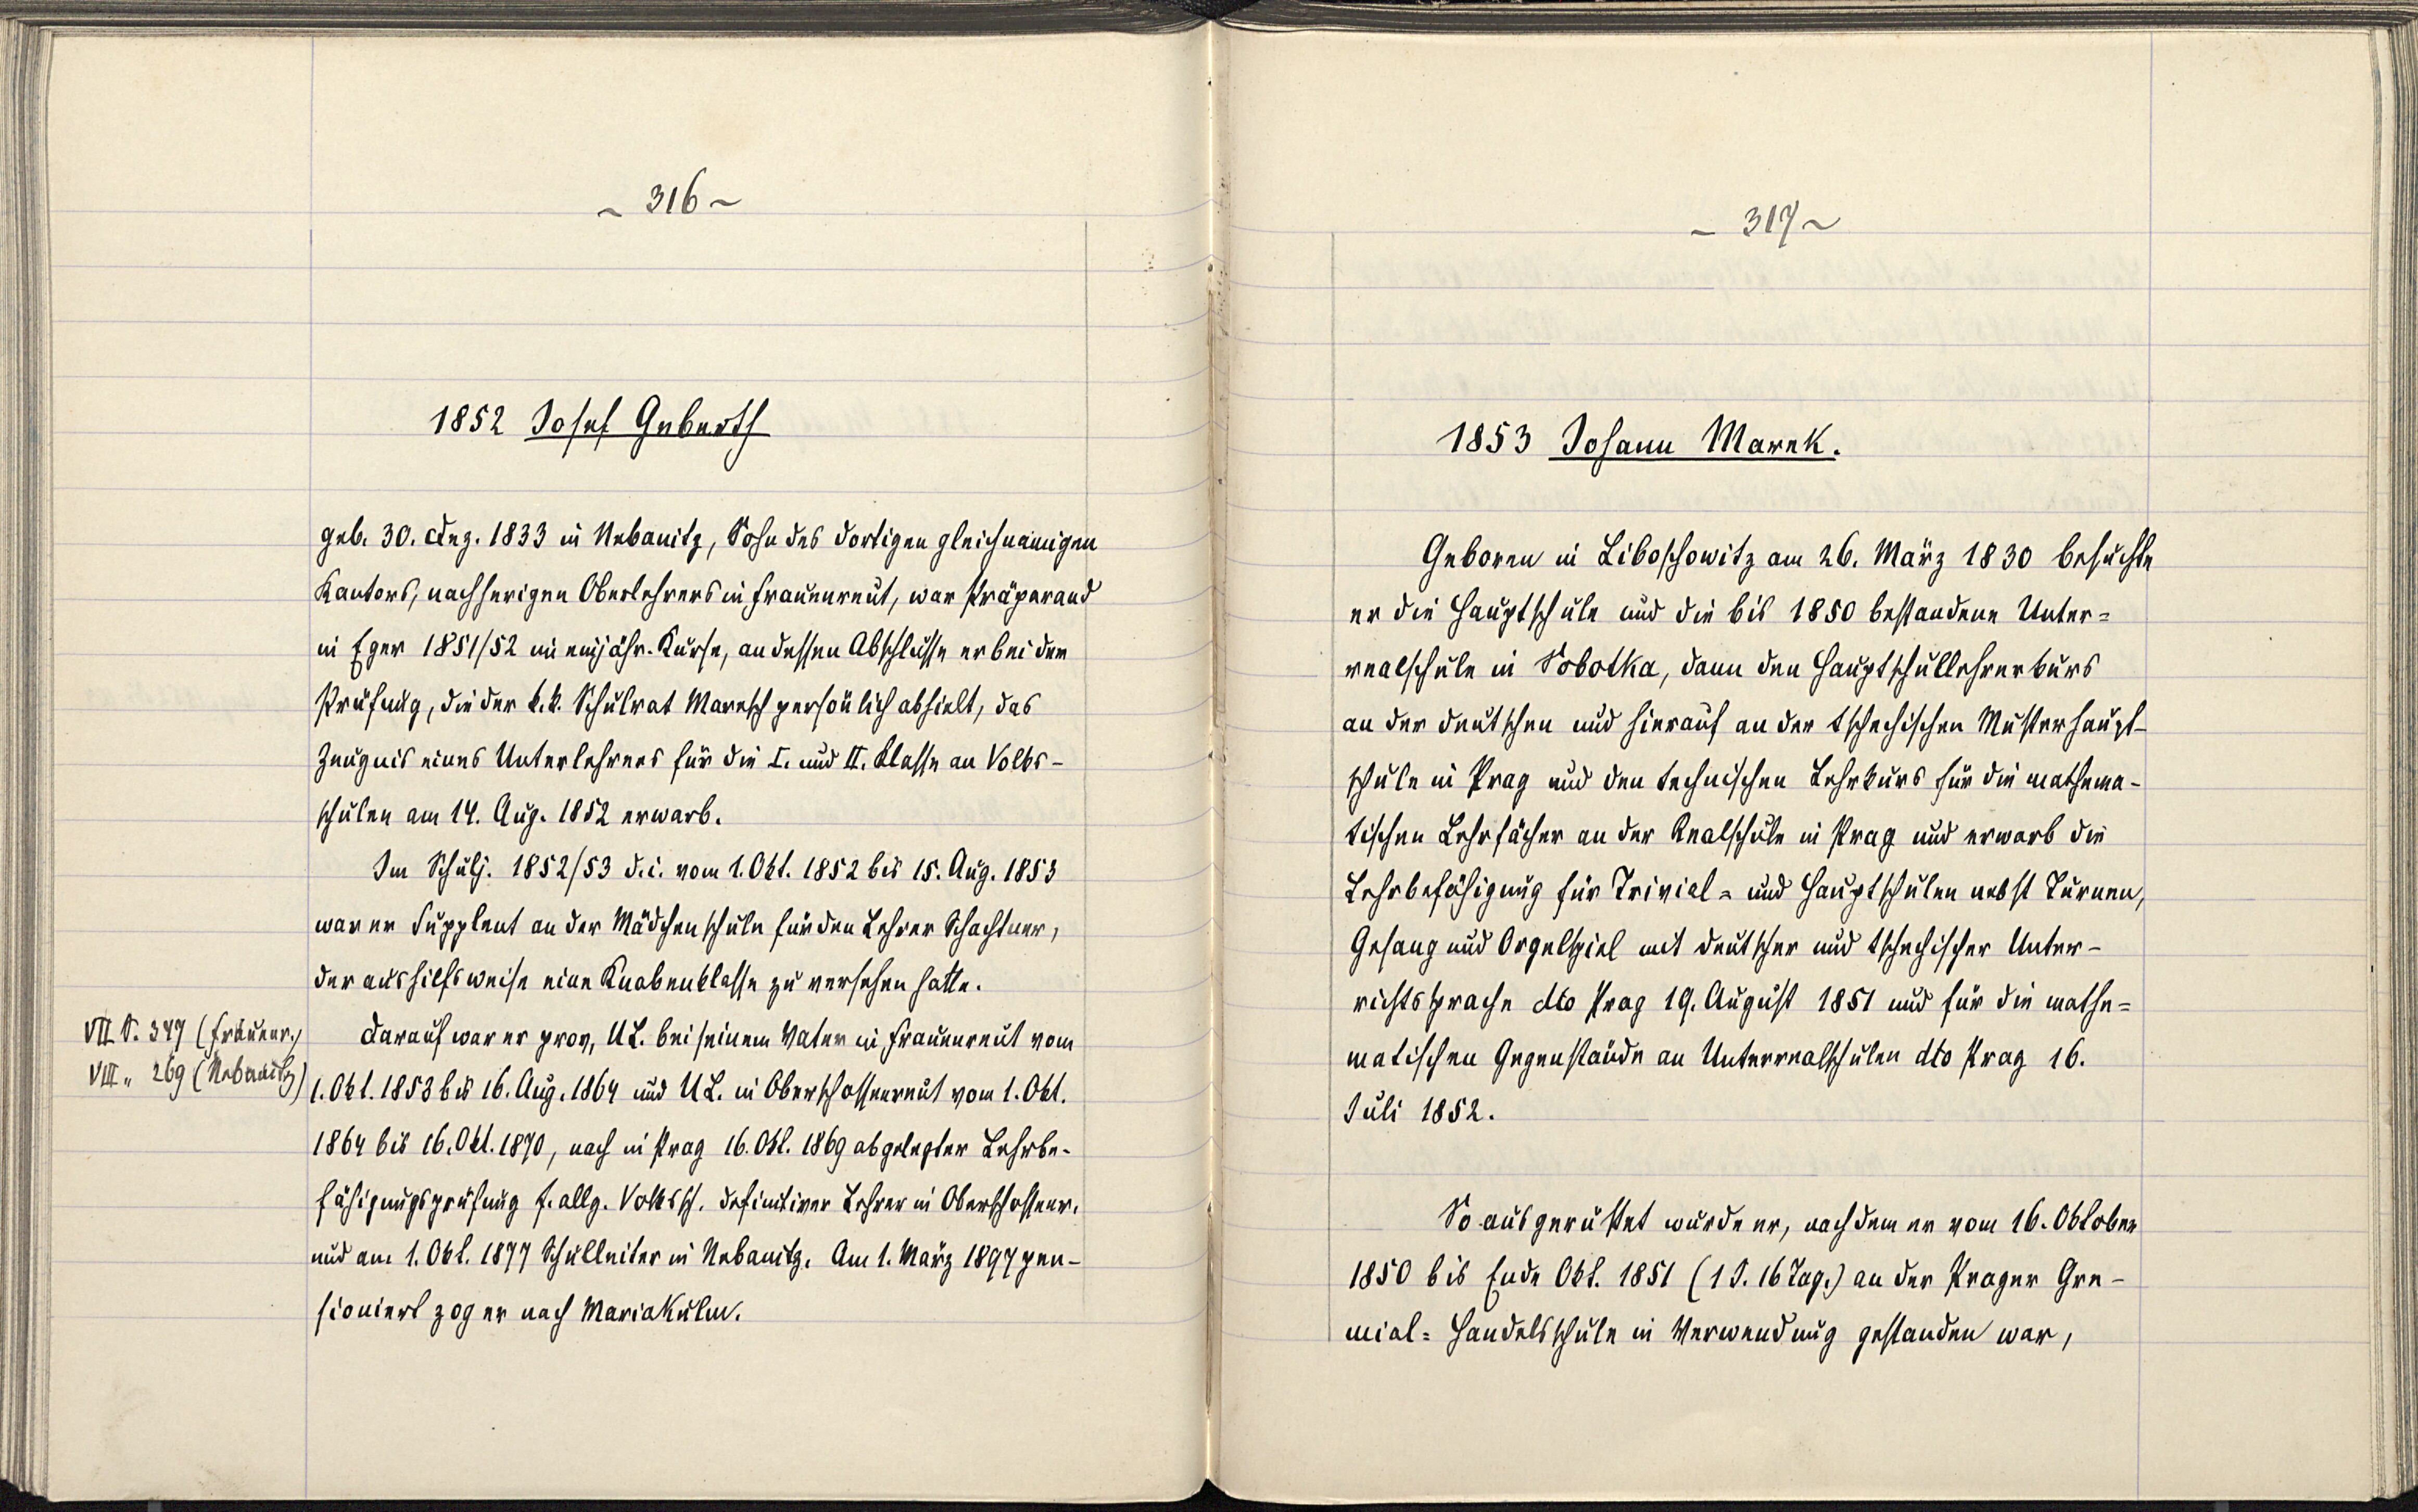 ~ 316 ~
1852 Josef Geberth
geb. 30. Dez. 1833 in Nebanitz, Sohn des dortigen gleichnamigen
Kantors, nachherigen Oberlehrers in Frauenreut, war Präparand
in Eger 1851/52 im einjähr. Kurse, an dessen Abschlusse er bei der
Prüfung, die der k.k. Schulrat Maresch persönlich abhielt, das
Zeugnis eines Unterlehrers für die I. und II. Klasse an Volks-
schulen am 14. Aug. 1852 erwarb.
Im Schulj. 1852/53 d.i. vom 1. Okt. 1852 bis 15. Aug. 1853
war er Supplent an der Mädchenschule für den Lehrer Schachtner,
der aushilfsweise eine Knabenklasse zu versehen hatte.
VII S. 347 (Frauenr.)
VIII „ 269 (Nebanitz)
Darauf war er prov. UL. bei seinem Vater in Frauenreut vom
1. Okt. 1853 bis 16. Aug. 1864 und UL. in Oberschossenreut vom 1. Okt.
1864 bis 16. Okt. 1870, nach in Prag 16. Okt. 1869 abgelegter Lehrbe-
fähigungsprüfung f. allg. Volkssch. definitiver Lehrer in Oberschossenr.
und am 1. Okt. 1877 Schulleiter in Nebanitz. Am 1. März 1897 pen-
sioniert zog er nach Mariakulm.
~ 317 ~
1853 Johann Marek.
Geboren in Liboschowitz am 26. März 1830 besuchte
er die Hauptschule und die bis 1850 bestandene Unter=
realschule in Sobotka, dann den Hauptschullehrerkurs
an der deutschen und hierauf an der tschechischen Musterhaupt-
schule in Prag und den technischen Lehrkurs für die mathema-
tischen Lehrfächer an der Realschule in Prag und erwarb die
Lehrbefähigung für Trivial= und Hauptschulen nebst Turnen,
Gesang und Orgelspiel mit deutscher und tschechischer Unter-
richtssprache dto Prag 19. August 1851 und für die mathe=
matischen Gegenstände an Unterrealschulen dto Prag 16.
Juli 1852.
So ausgerüstet wurde er, nachdem er vom 16. Oktober
1850 bis Ende Okt. 1851 (1 J. 16 Tag.) an der Prager Gre-
mial= Handelsschule in Verwendung gestanden war,